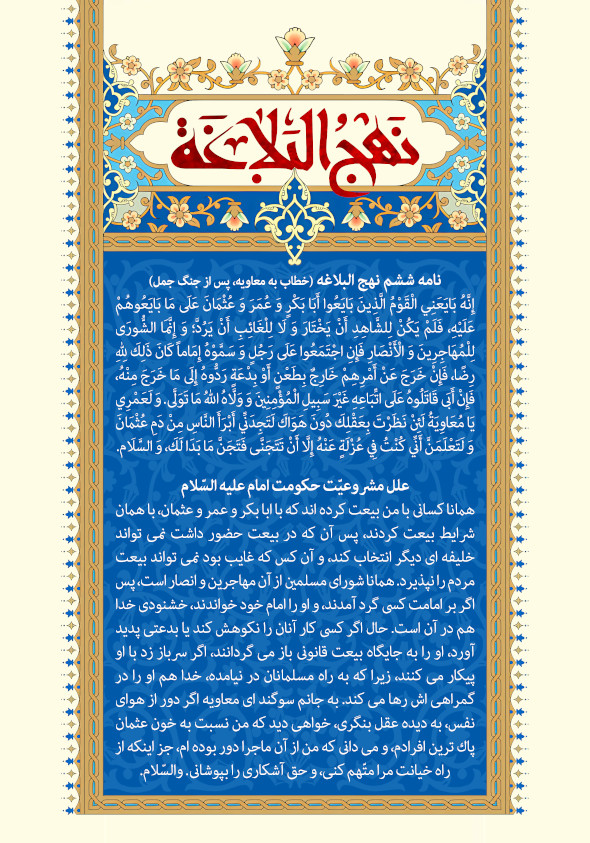 نَهجُ البَلاغَة
نامه ششم نهج البلاغه (خطاب به معاویه، پس از جنگ جمل)
إِنَّهُ بَایَعَنِي الْقَوْمُ الَّذِینَ بَایَعُوا أَبَا بَکْرٍ وَ عُمَرَ وَ عُثْمَانَ عَلَی مَا بَایَعُوهُمْ
عَلَیْهِ، فَلَمْ یَکُنْ لِلشَّاهِدِ أَنْ یَخْتَارَ وَ لَا لِلْغَائِبِ أَنْ یَرُدَّ؛ وَ إِنَّمَا الشُّورَی
لِلْمُهَاجِرِینَ وَ الْأَنْصَارِ فَإِنِ اجْتَمَعُوا عَلَی رَجُلٍ وَ سَمَّوْهُ إِمَاماً کَانَ ذَلِكَ لِلّٰهِ
رِضًا، فَإِنْ خَرَجَ عَنْ أَمْرِهِمْ خَارِجٌ بِطَعْنٍ أَوْ بِدْعَةٍ رَدُّوهُ إِلَی مَا خَرَجَ مِنْهُ،
فَإِنْ أَبَی قَاتَلُوهُ عَلَی اتِّبَاعِهِ غَیْرَ سَبِیلِ الْمُؤْمِنِینَ وَ وَلَّاهُ اللهُ مَا تَوَلَّی. وَ لَعَمْرِي
یَا مُعَاوِیَةُ لَئِنْ نَظَرْتَ بِعَقْلِكَ دُونَ هَوَاكَ لَتَجِدَنِّي أَبْرَأَ النَّاسِ مِنْ دَمِ عُثْمَانَ
وَ لَتَعْلَمَنَّ أَنِّي کُنْتُ فِي عُزْلَةٍ عَنْهُ إِلَّا أَنْ تَتَجَنَّی فَتَجَنَّ مَا بَدَا لَكَ، وَ السَّلَام.
علل مشروعیّت حکومت امام علیه السّلام
همانا کسانی با من بیعت کرده اند که با ابا بکر و عمر و عثمان، با همان
شرایط بیعت کردند، پس آن که در بیعت حضور داشت نمی تواند
خلیفه ای دیگر انتخاب کند، و آن کس که غایب بود نمی تواند بیعت
مردم را نپذیرد. همانا شورای مسلمین از آن مهاجرین و انصار است، پس
اگر بر امامت کسی گرد آمدند، و او را امام خود خواندند، خشنودی خدا
هم در آن است. حال اگر کسی کار آنان را نکوهش کند یا بدعتی پدید
آورد، او را به جایگاه بیعت قانونی باز می گردانند، اگر سر باز زد با او
پیکار می کنند، زیرا که به راه مسلمانان در نیامده، خدا هم او را در
گمراهی اش رها می کند. به جانم سوگند ای معاویه اگر دور از هوای
نفس، به دیده عقل بنگری، خواهی دید که من نسبت به خون عثمان
پاك ترین افرادم، و می دانی که من از آن ماجرا دور بوده ام، جز اینکه از
راه خیانت مرا متّهم کنی، و حق آشکاری را بپوشانی. والسّلام.